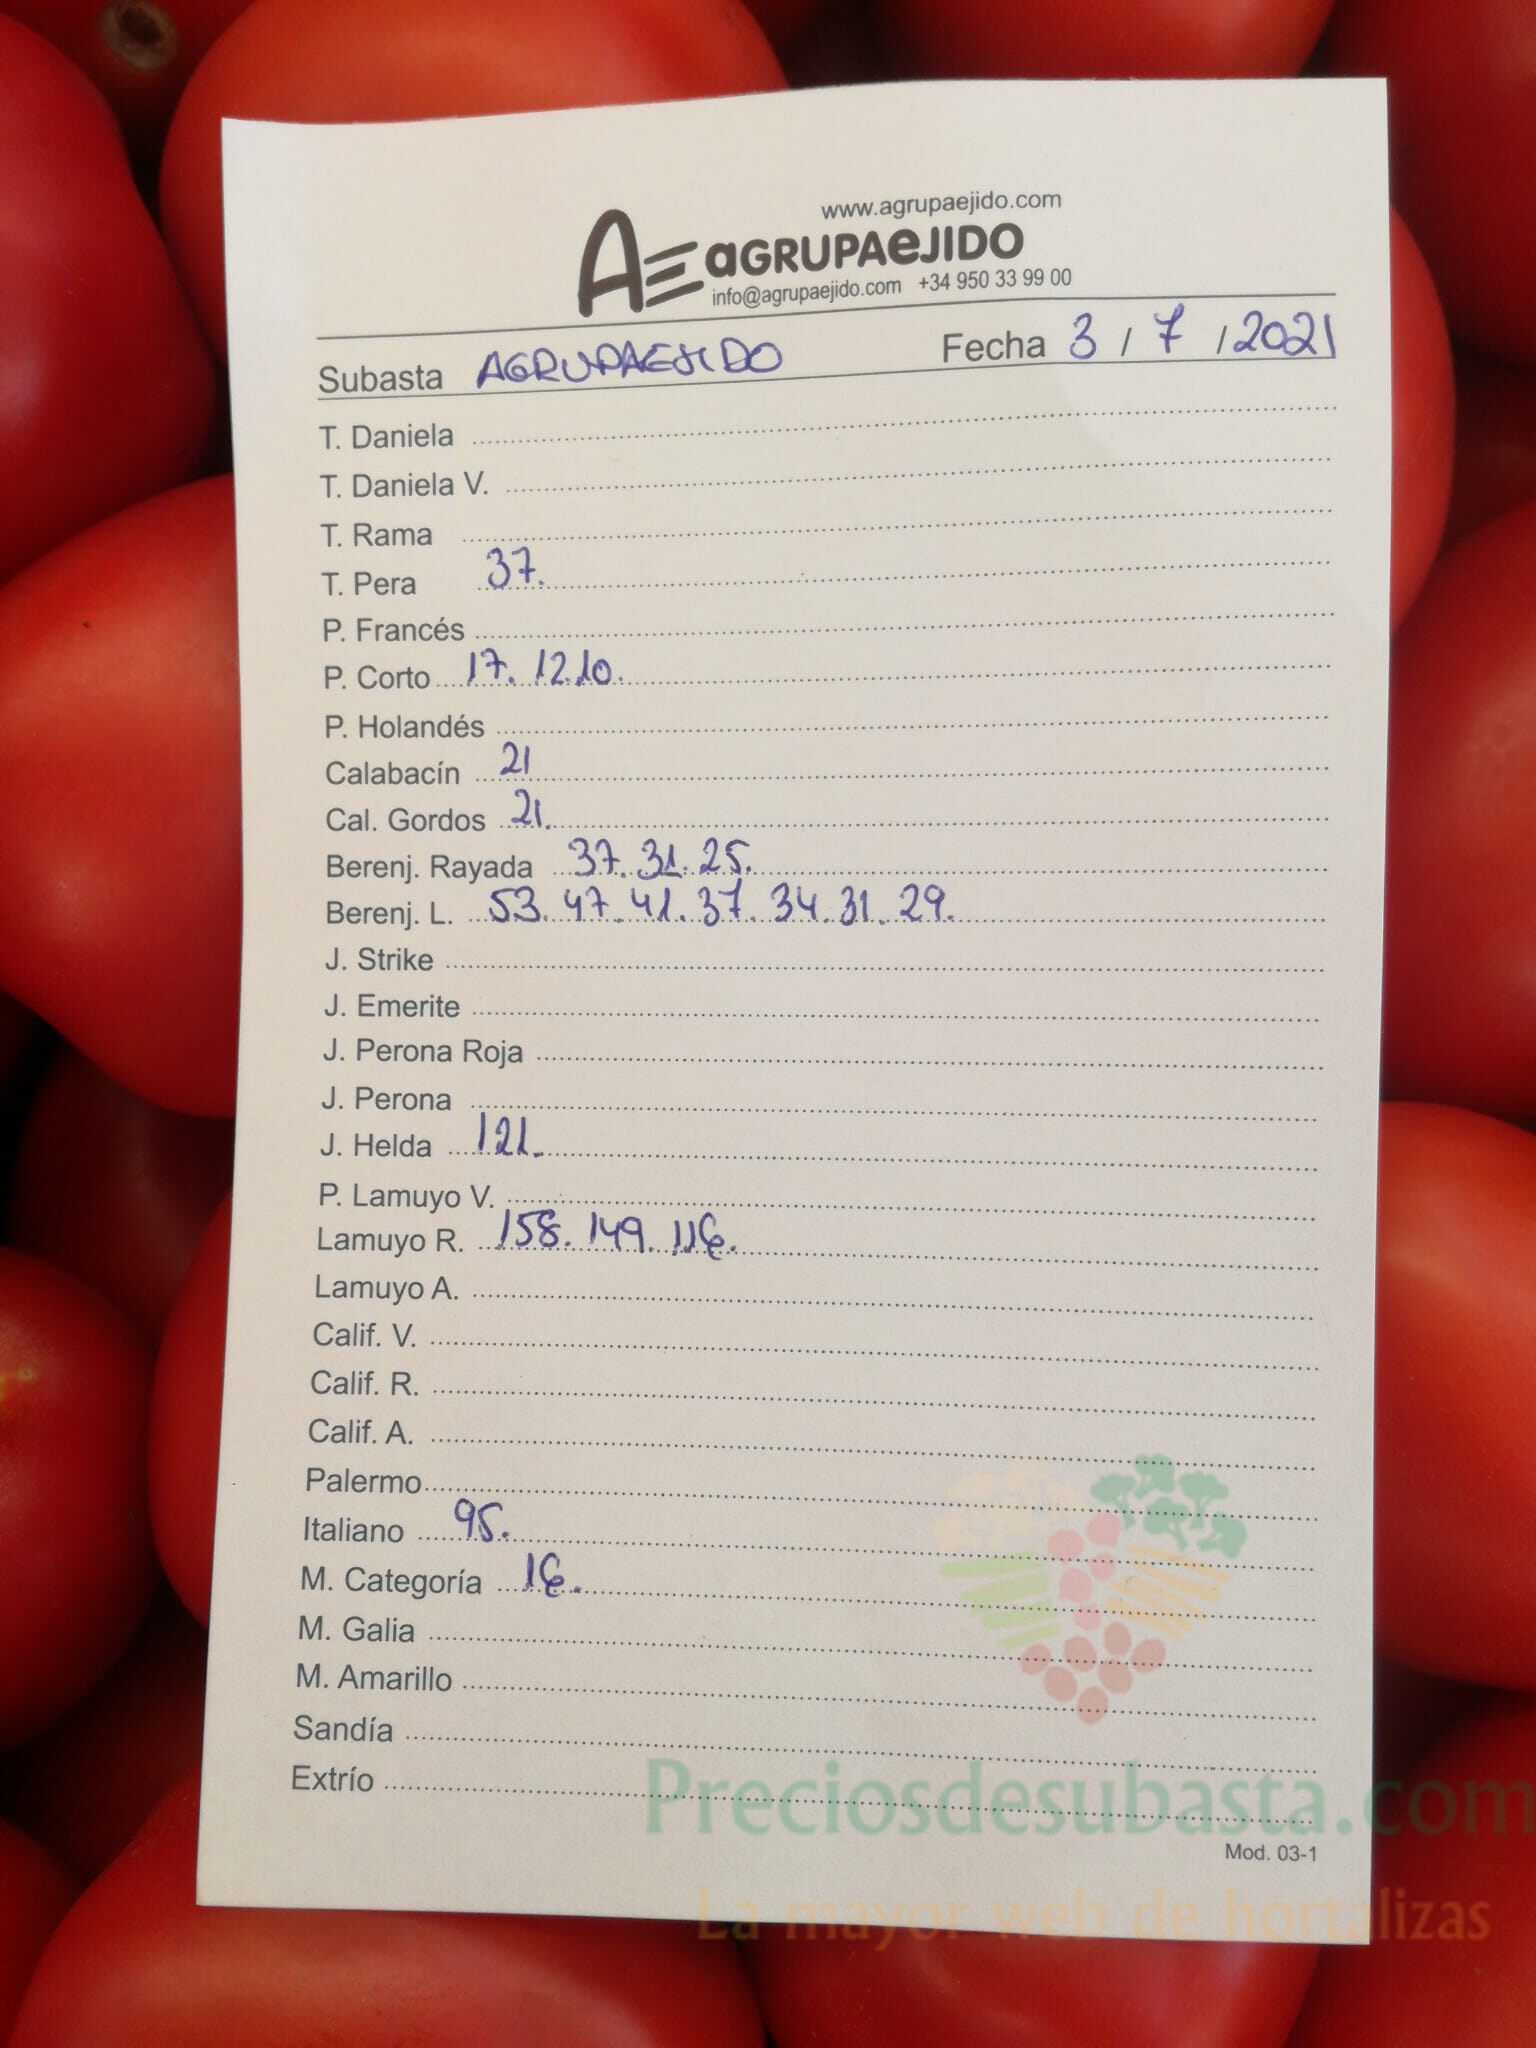 www.agrupaejido.com
AE aGRUPAeJIDO
info@agrupaejido.com +34 950 33 99 00
Subasta AGRUPAEJIDO Fecha 3 / 7 / 2021
T. Daniela
T. Daniela V.
T. Rama
T. Pera 37.
P. Francés
P. Corto 17. 12.10.
P. Holandés
Calabacín 21
Cal. Gordos 21.
Berenj. Rayada 37. 31. 25.
Berenj. L. 53. 47. 41. 37. 34. 31. 29.
J. Strike
J. Emerite
J. Perona Roja
J. Perona
J. Helda 121.
P. Lamuyo V.
Lamuyo R. 158. 149. 116.
Lamuyo A.
Calif. V.
Calif. R.
Calif. A.
Palermo
Italiano 95.
M. Categoría 16.
M. Galia
M. Amarillo
Sandía
Extrío
Preciosdesubasta.com
Mod. 03-1
La mayor web de hortalizas